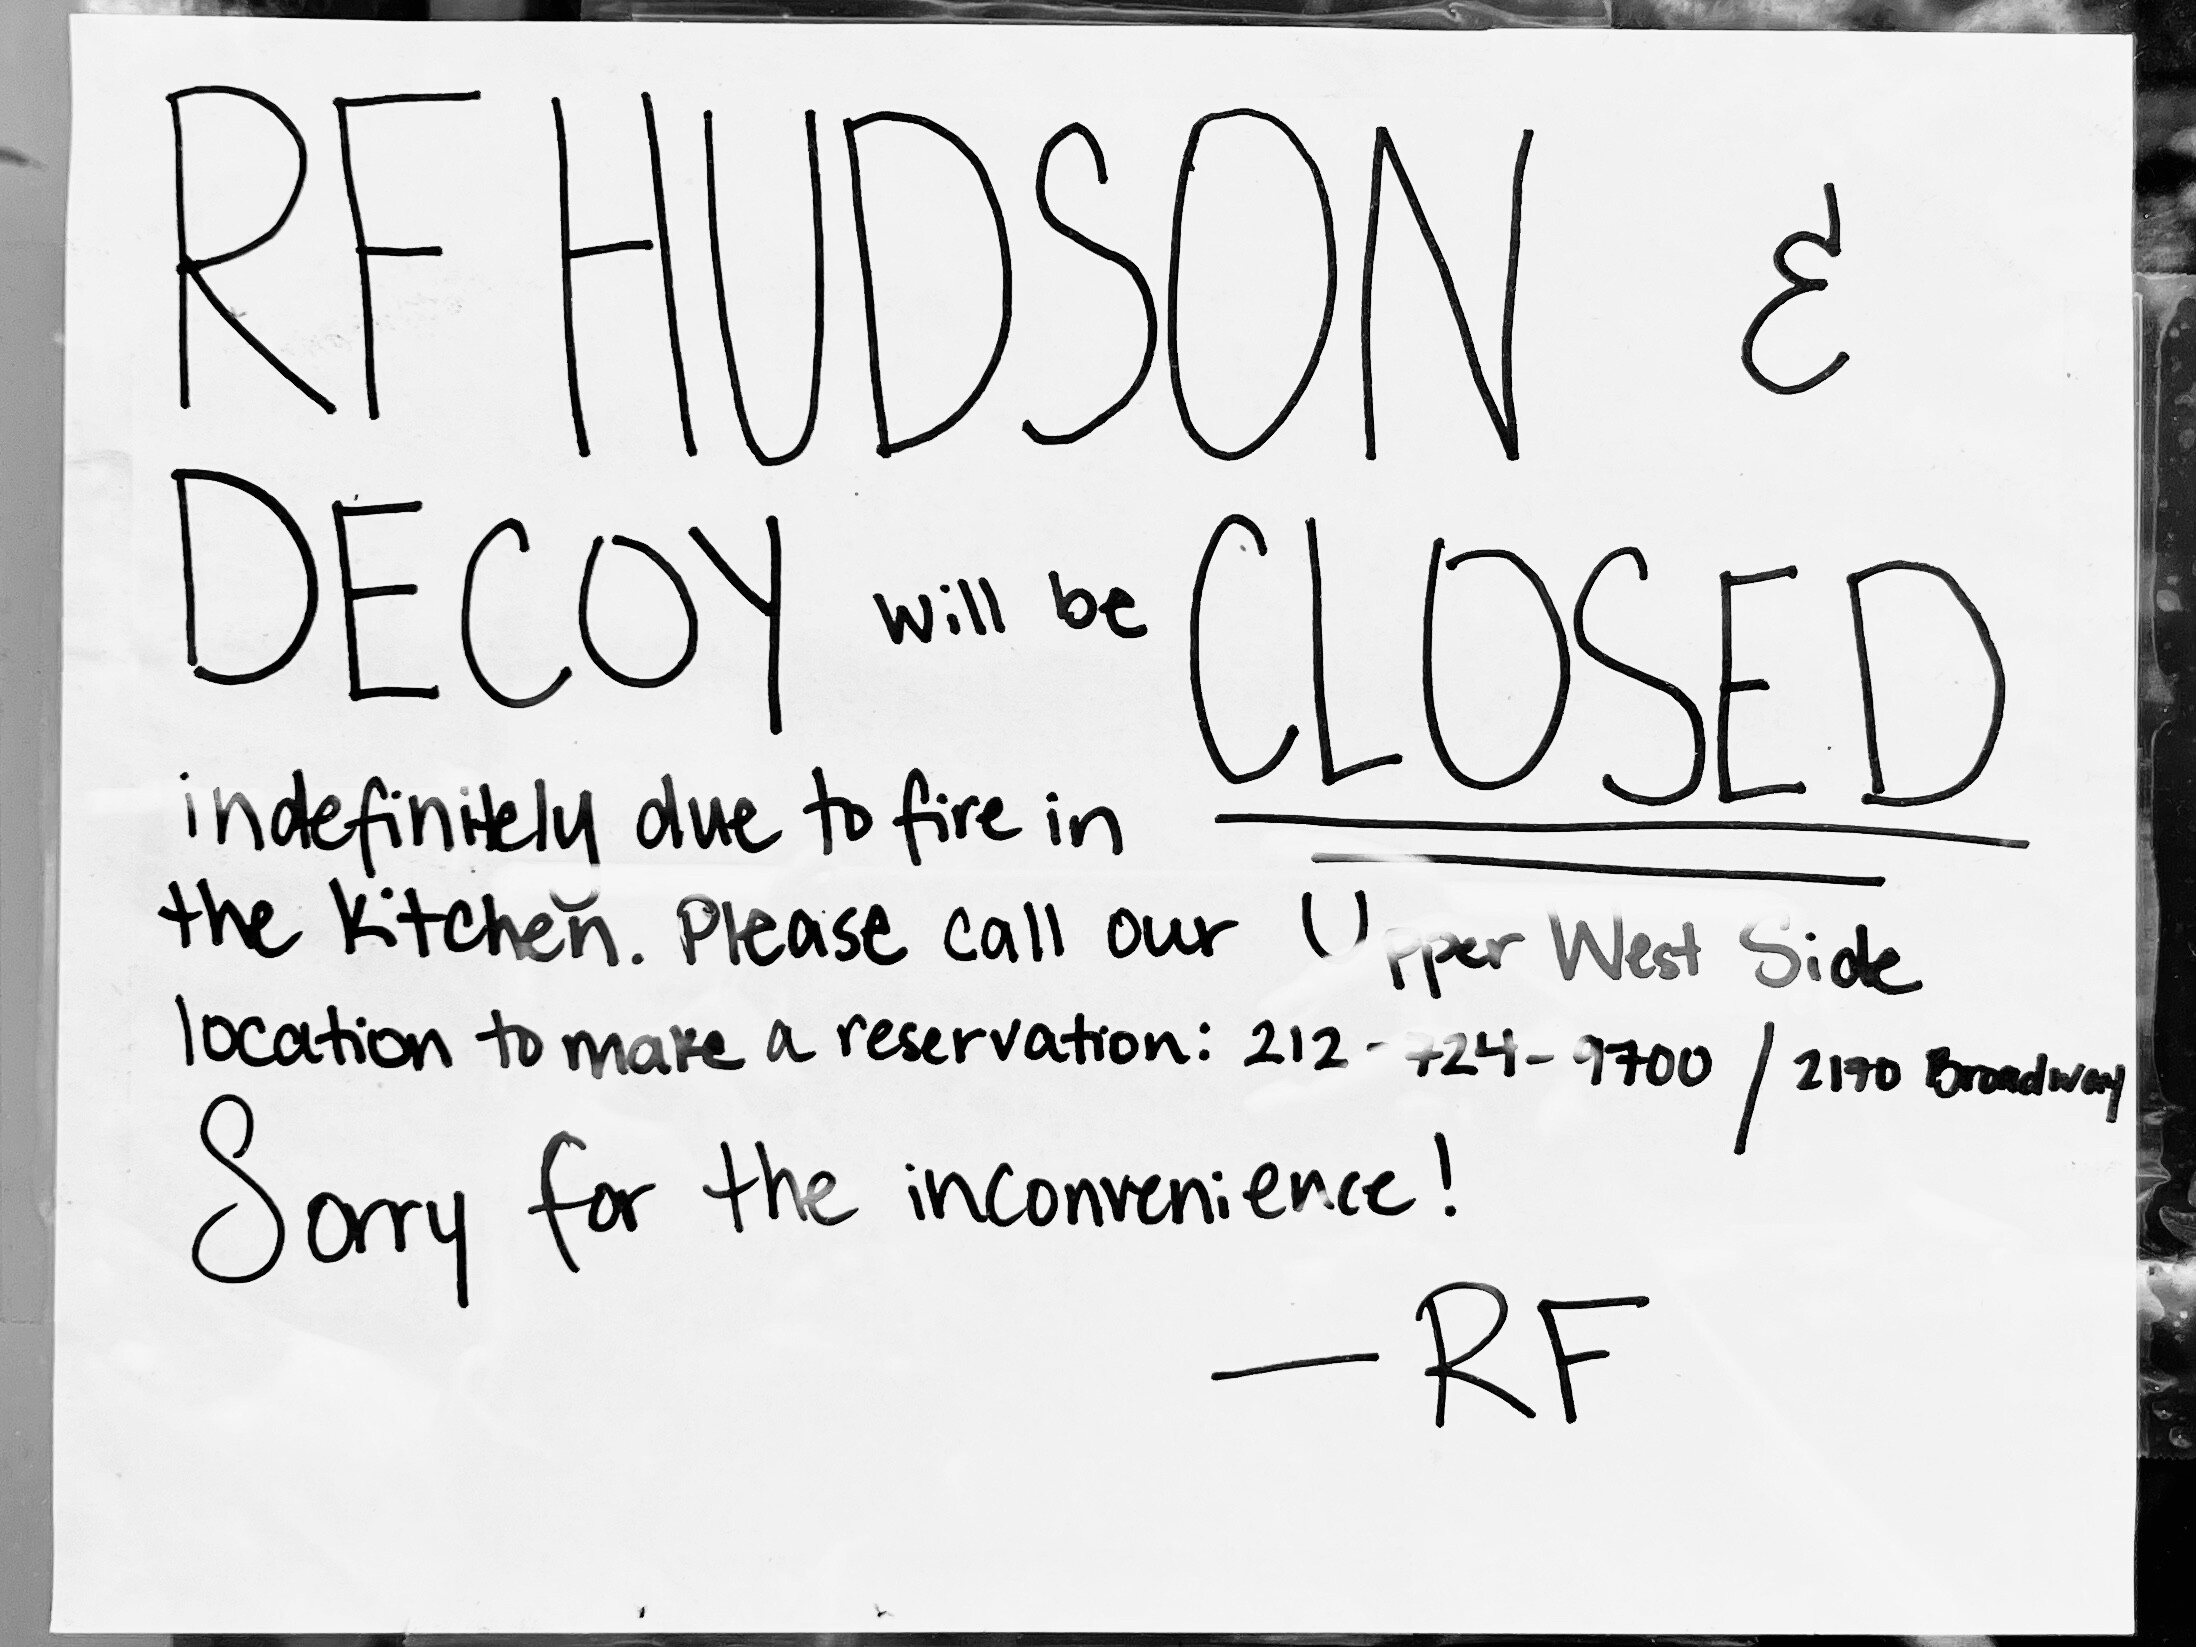 RF HUDSON &
DECOY will be CLOSED
indefinitely due to fire in
the kitchen. Please call our Upper West Side
location to make a reservation: 212-724-9700 / 2170 Broadway
Sorry for the inconvenience!
— RF